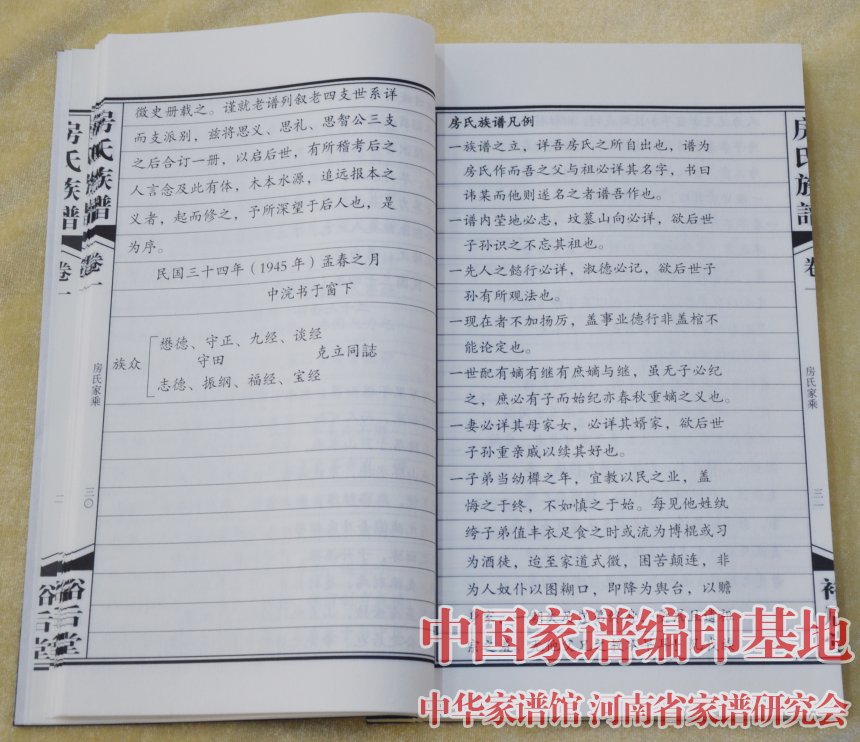 徵史册载之。谨就老谱列叙老四支世系详
而支派别，兹将思义、思礼、思智公三支
之后合订一册，以启后世，有所稽考后之
人言念及此有体，木本水源，追远报本之
义者，起而修之，予所深望于后人也，是
为序。
民国三十四年（1945年）孟春之月
中浣书于窗下
族众
懋德、守正、九经、谈经
守田
志德、振纲、福经、宝经
克立同誌
房氏族谱
卷一
房氏家乘
三〇
裕后堂
房氏族谱
卷一
二
裕后堂
房氏族谱凡例
一族谱之立，详吾房氏之所自出也，谱为
房氏作而吾之父与祖必详其名字，书曰
讳某而他则遂名之者谱吾作也。
一谱内茔地必志，坟墓山向必详，欲后世
子孙识之不忘其祖也。
一先人之懿行必详，淑德必记，欲后世子
孙有所观法也。
一现在者不加扬厉，盖事业德行非盖棺不
能论定也。
一世配有嫡有继有庶嫡与继，虽无子必纪
之，庶必有子而始纪亦春秋重嫡之义也。
一妻必详其母家女，必详其婿家，欲后世
子孙重亲戚以续其好也。
一子弟当幼樨之年，宜教以民之业，盖
悔之于终，不如慎之于始。每见他姓纨
绔子弟值丰衣足食之时或流为博棍或习
为酒徒，迨至家道式微，困苦颠连，非
为人奴仆以图糊口，即降为舆台，以赡
房氏族谱
卷一
房氏家乘
三一
中国家谱编印基地
中华家谱馆 河南省家谱研究会